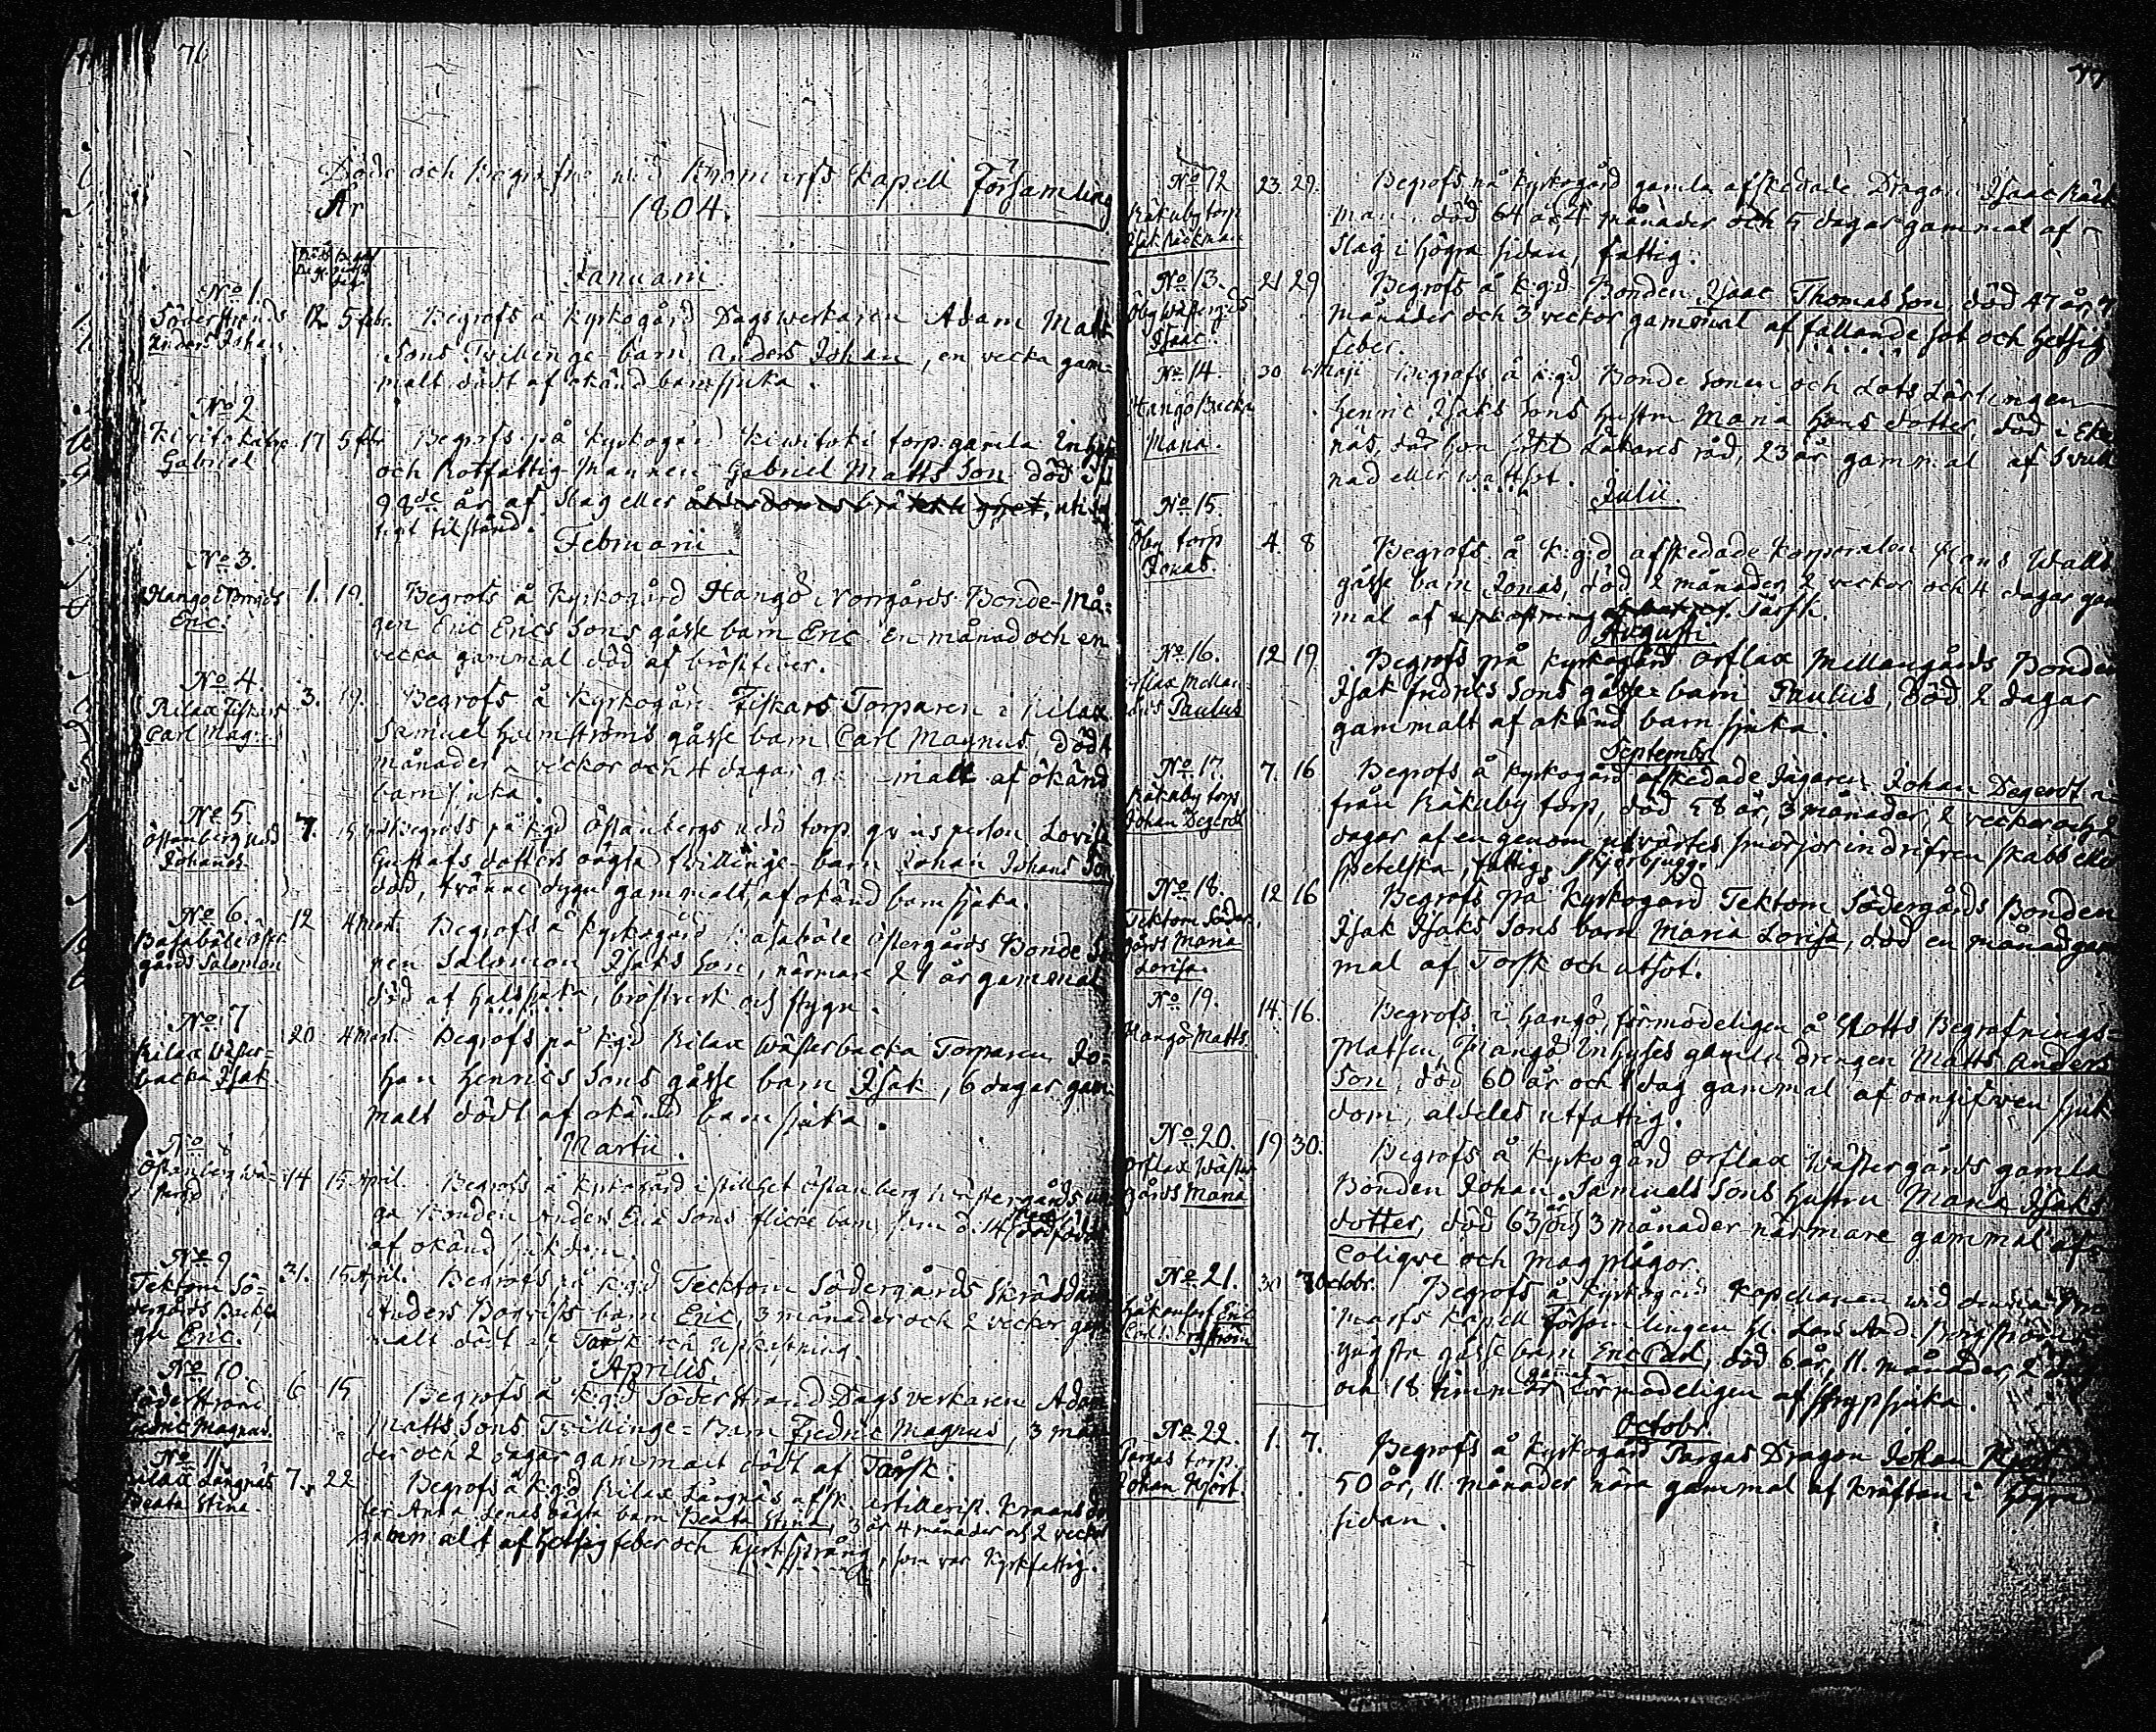 76
Döde och Begrafne wid Bromarfs Kapell Församling
År 1804.
Januarii
No 1.
Söderstrands
Anders Johan
12 5 febr. Begrofs å Kyrkogård Dagswerkaren Adam Matts
Sons Tvillinge-barn Anders Johan, en vecka gam=
malt dödt af okänd barnsjuka.
No 2
Gabriel
17 5 febr Begrofs på Kyrkogård Kiwitoki torp gamla Inhyses
och Rotfattig-Mannen Gabriel Matts Son död i sit
98de år af Slag eller ålderdoms bräcklighet, uti
tigt tilstånd.
Februarii
No 3.
Hangö Norrgårds
Eric
1. 19. Begrofs å Kyrkogård Hangö Norrgårds Bonde-Må=
gen Eric Erics Sons gåsse barn Eric en månad och en
vecka gammal död af bröstfeber.
No 4.
Rilax Fiskars
Carl Magnus
3. 19. Begrofs å Kyrkogård Fiskars Torparen i Rilax
Samuel Holmströms gåsse barn Carl Magnus, död 4
månader veckor och 4 dagar malt af okänd
barnsjuka.
No 5.
Östanberg
Johannes
7. Begrofs på Kgd Östanbergs torp qvinsperson Lovisa
Gustafs dotters oägta tvillinge-barn Johan Johans Son
död, tränne dygn gammalt, af okänd barnsjuka.
No 6.
Basaböle Öster
gårds Salomon
12 4 mart. Begrofs å Kyrkogård Basaböle Östergårds Bonde So
nen Salomon Isaks Son, närmare 21 år gammal
död af halssjuka, bröstverk och stygn.
No 7
Rilax Wäster=
backa Isak
20 4 mart. Begrofs på Kgd Rilax Wästerbacka Torparen Jo=
han Henrics Sons gåsse barn Isak, 6 dagar gam
malt dödt af okänd barnsjuka.
Martii.
No 8
Östanberg Wä=
stergd
14 15 April. Begrofs å Kyrkogård i stillhet Östanberg Wästergårds
ga Bonden Anders Eric Sons flicke barn som d. 14 dödfödt
af okänd sjukdom.
No 9
Tektom Sö=
dergårds
Eric.
31. 15 April. Begrofs på Kgd Tecktom Södergårds Skräddare
Anders barn Eric, 3 månader och 2 veckor gam
malt dödt af Torsk och upkastning.
Aprilis.
No 10.
Söderstrand
Fredric Magnus.
6 15 Begrofs å Kgd Söderstrand Dagsverkaren Adam
Matts Sons Tvillinge=Barn Fredric Magnus, 3 måna
der och 2 dagar gammalt dödt af Torsk.
No 11
Rilax Långnäs
Beata Stina.
7. 22 Begrofs å Kgd Rilax Långnäs afsk. artillerist. Kraans dot
ter Anna Lenas oägta barn Beata Stina, 3 år 4 månader och 2 veckor
alt af hetsig feber och hjertsprång, som var kyrkfattig.
77
No 12
Räkuby torp
Isak Räckman
23 29. Begrofs på Kyrkogård gamla afskedade Dragon Isaac Räck
man, död 64 år, 4 månader och 5 dagar gammal af
Slag i högra sidan, fattig.
No 13.
Öby Wästergårds
Isaac.
21 29 Begrofs å Kgd Bonden Isaac Thomas Son, död 47 år, 7
månader och 3 veckor gammal af fallande sot och hetsig
feber.
No 14.
Hangö Backa
Maria.
30 Maji Begrofs å Kgd Bonde Sonen och Lots Lärlingen
Henric Isaks Sons hustru Maria Hans dotter, död i Eke
näs, där hon sökt Läkares råd, 23 år gammal af Svull
nad eller wattsot.
Julii.
No 15.
Öby torp
Jonas
4. 8 Begrofs å Kgd afskedade Korporalen Hans Walls
gåsse barn Jonas, död 2 månader, 2 veckor och 4 dagar gam
mal af Torsk.
Augusti
No 16.
Orslax Mellan
gårds Paulus
12 19. Begrofs på Kyrkogård Orslax Mellangårds Bonden
Isak Fredrics Sons gåsse-barn Paulus, död 2 dagar
gammalt af okänd barnsjuka.
Septembr.
No 17
Räkuby torp
Johan Degerdt
7. 16 Begrofs å Kyrkogård afskedade Jägaren Johan Degerdt
från Räkuby torp, död 58 år, 3 månader, 2 veckor och 2
dagar af en genom utvärtes smörjor indrifven skabb eller
Spetelska, fattig. Skjörbjugg.
No 18.
Tektom Söder
gårds Maria
Lovisa.
12 16 Begrofs på Kyrkogård Tektom Södergårds Bonden
Isak Isaks Sons barn Maria Lovisa, död en månad gam
mal af Torsk och utsot.
No 19.
Hangö Matts
14. 16. Begrofs i Hangö, förmodeligen å Slotts Begrafnings=
Platsen, Hangö Inhyses gamla drengen Matts Anders
Son, död 60 år och 1 dag gammal af oangifven sjuk
dom, aldeles utfattig.
No 20.
Orslax Wäster
gårds Maria
19 30. Begrofs å Kyrkogård Orslax Wästergårds gamla
Bonden Johan Samuels Sons hustru Maria Isaks
dotter, död 63 och 3 månader närmare gammal af
Coliqve och magplågor.
No 21.
Eric
Carl Bergström
30 7 Octobr. Begrofs å Kyrkogård Kapellanen wid denna Bro
marfs Kapell Församlingen H. Lars And. Bergströms
yngsta gåsse barn Eric Carl, död 6 år, 11 månader, 2 dagar
och 18 timmar gammal förmodeligen af strypsjuka.
Octobr.
No 22.
Pargas torp
Johan Hjort
1. 7. Begrofs å Kyrkogård Pargas Dragon Johan Hjort
50 år, 11 månader nära gammal af Kräftan i högra
sidan.